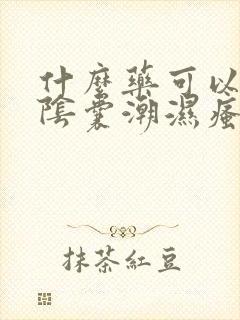 什麼藥可以
陰囊潮濕瘙
抹茶紅豆